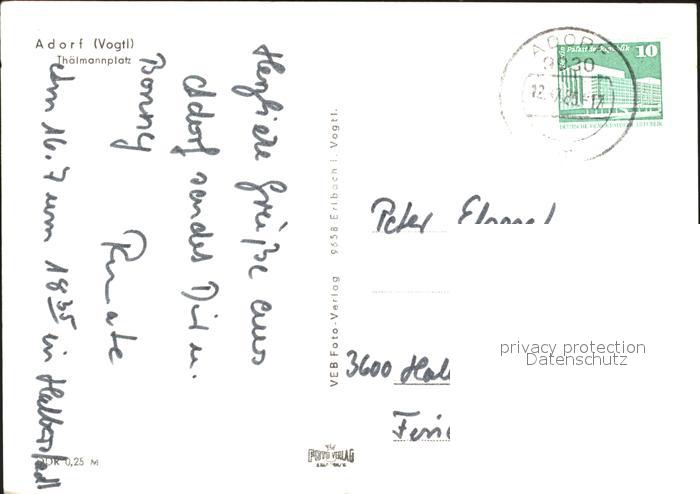 Adorf (Vogtl)
Thälmannplatz
Herzliche Grüße aus
Adorf sendet Dir u.
Bonny
Renate
Am 16.7 um 18 35 in Halberstadt
DDR 0,25 M
VEB Foto-Verlag 9658 Erlbach i. Vogtl.
FOTO VERLAG
ADORF
9930
Berlin Palast der Republik 10
DEUTSCHE DEMOKRATISCHE REPUBLIK
Peter
3600
privacy protection
Datenschutz